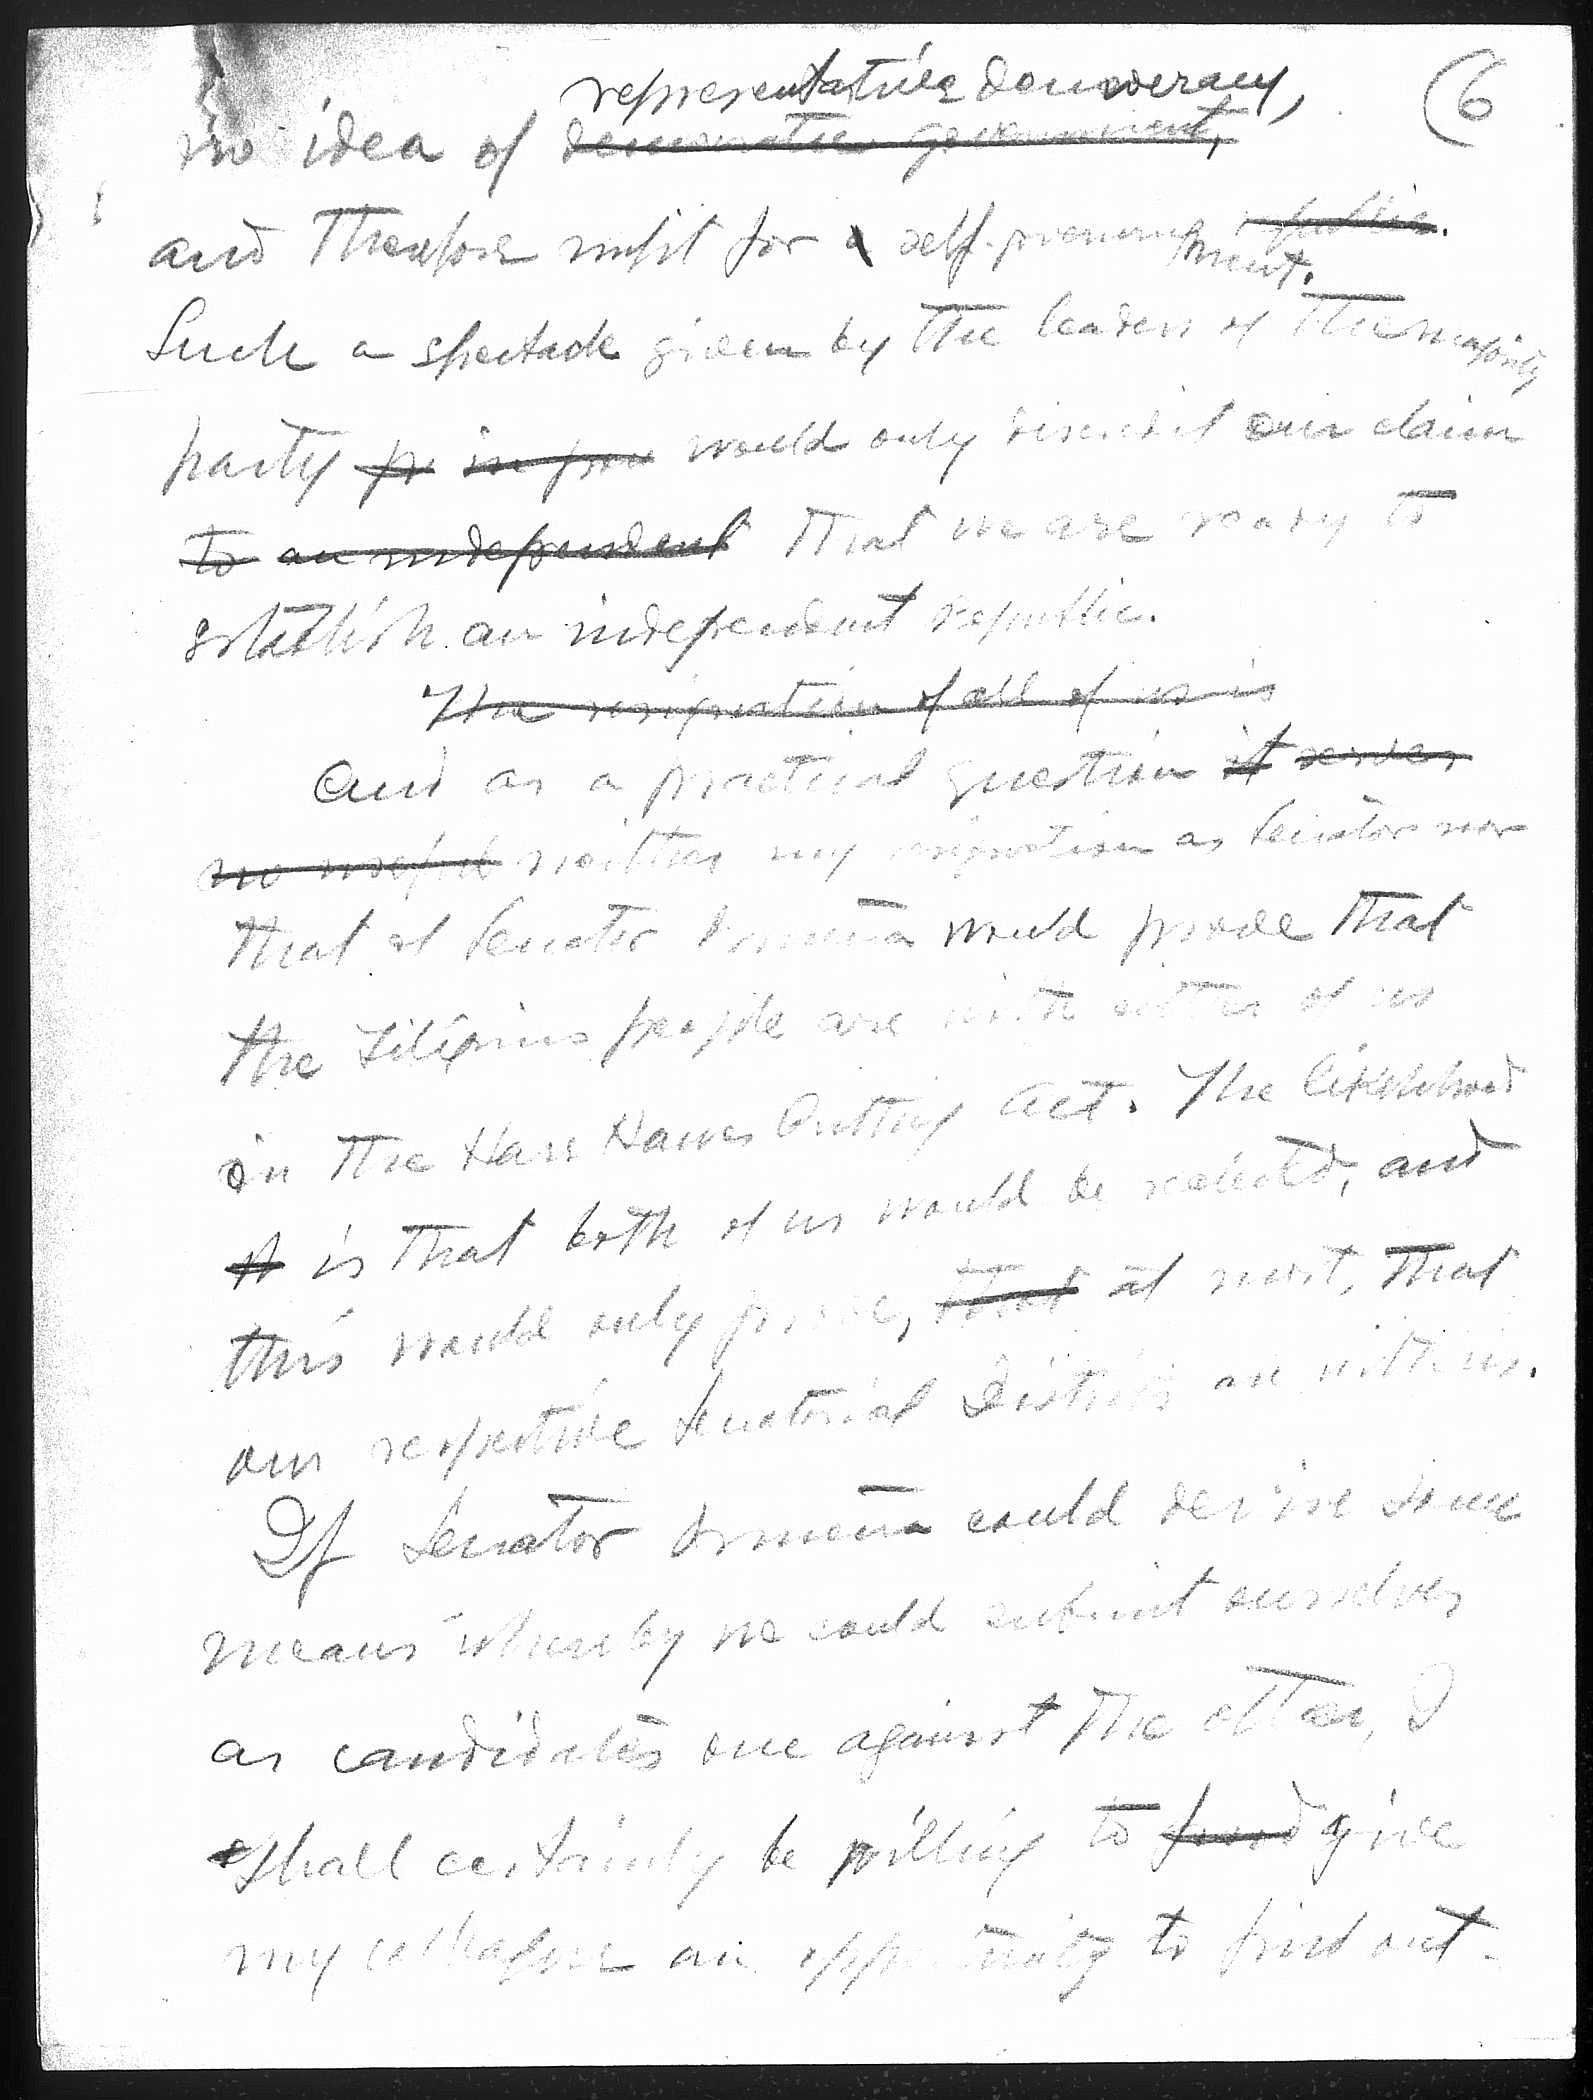 representative democracy, (6
no idea of democratic government,
and therefore unfit for a self-govern republic.
ment.
Such a spectacle given by the leaders of the majority
party pr in fron would only discredit our claim
to an independent that we are ready to
establish an independent republic.
The resignation of all of us is
And as a practical question it serves
no useful neither my resignation as Senator nor
that of Senator Osmeña would prove that
the Filipino people are with either of us
on the Hare Hawes Cutting Act. The likelihood
is that both of us would be reelected, and
this would only prove, that at most, that
our respective Senatorial Districts are with us.
If Senator Osmeña could devise some
means whereby we could submit ourselves
as candidates one against the other, I
shall certainly be willing to give
my colleague an opportunity to find out